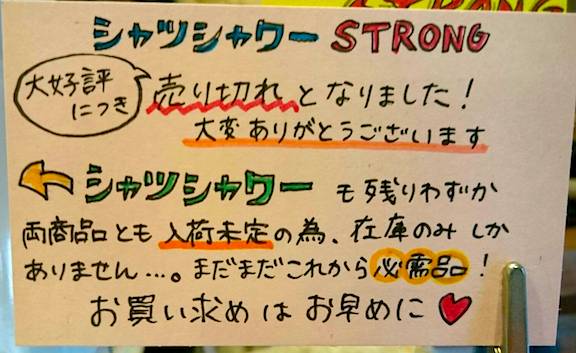 シャツシャワー STRONG
大好評
につき
売り切れとなりました！
大変ありがとうございます
シャツシャワー も残りわずか
両商品とも入荷未定の為、在庫のみしか
ありません…。まだまだこれから必需品！
お買い求めはお早めに